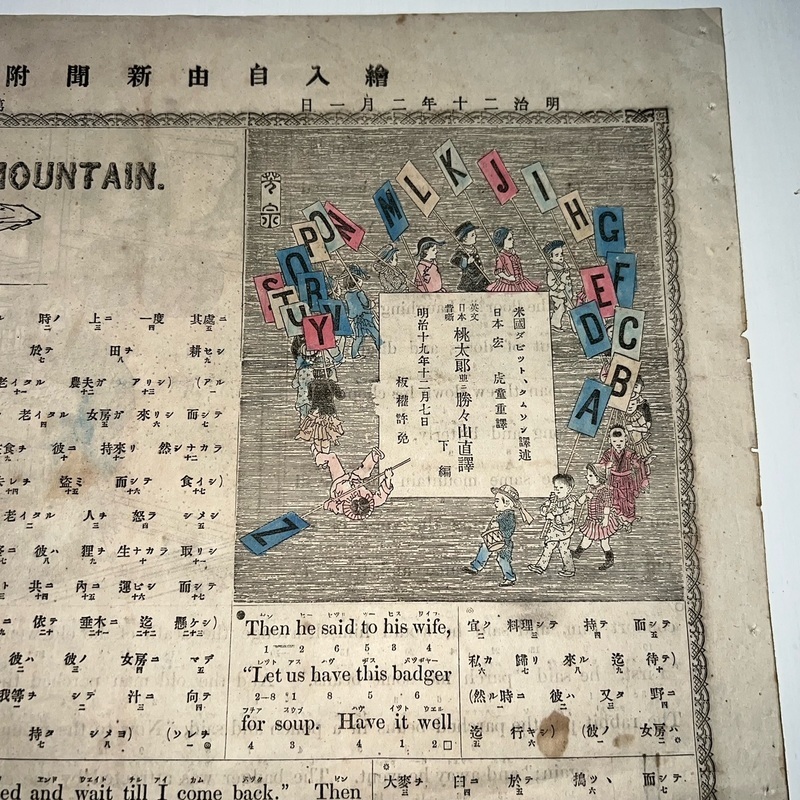 繪入自由新聞附
明治二十年二月一日
MOUNTAIN.
芳宗
A
B
C
D
E
F
G
H
I
J
K
L
M
N
O
P
Q
R
S
T
U
V
Y
Z
米國ダビット、タムソン譯述
日本宏 虎童重譯
英文
日本
昔噺
桃太郎並ニ勝々山直譯
下編
明治十九年十二月七日
板權許免
時ノ 上ニ 一度 其處ニ
於テ 田チ 耕セシ
老イタル 農夫ガ アリシ) (アル
老イタル 女房ガ 來リシ 而シテ
食チ 彼ニ 持來リ 然シナカラ
盜ミ 而シテ 食イシ)
老イタル 人チ 怒ラ シメシ
彼ハ 狸チ 生ナカラ 取リシ
共ニ 內ニ 運ビシ 而シテ
依テ 垂木ニ 迄 懸ケシ)
彼ハ 彼ノ 女房ニ マデ
我等チ シテ 汁ニ 向テ
持タ シメヨ) (ソレチ
Then he said to his wife,
1 2 6 5 3 4
“Let us have this badger
2-8 1 8 5 6
for soup. Have it well
4 3 4 1 2
宜ク 料理シテ 持テ 而シテ
私カ 歸リ 來ル 迄 待テ)
(然ル時ニ 彼ハ 又タ 野ニ
迄 行キシ) (彼ノ 女房ハ
ed and wait till I come back.” Then
大麥チ 臼ニ 於テ 搗ツヽ 而シテ